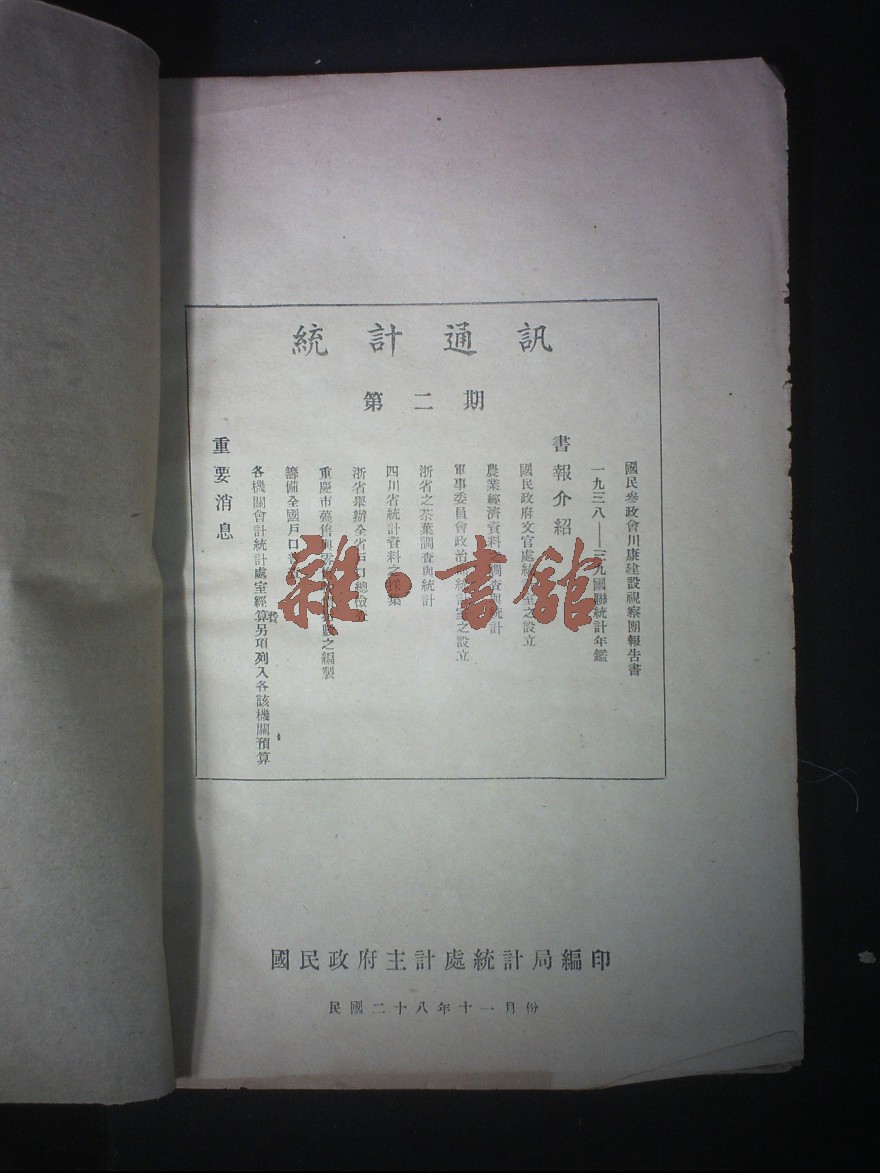 統計通訊
第二期
重要消息
各機關會計統計處室經算另項列入各該機關預算
費
籌備全國戶口
重慶市躉售與零 之編製
浙省舉辦全省戶口總檢查
四川省統計資料之採集
浙省之茶葉調查與統計
軍事委員會政治部統計室之設立
農業經濟資料之調查與統計
國民政府文官處統計室之設立
書報介紹
一九三八——三九國聯統計年鑑
國民叅政會川康建設視察團報告書
雜·書館
國民政府主計處統計局編印
民國二十八年十一月份